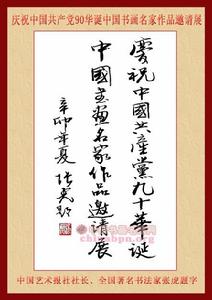 庆祝中国共产党90华诞中国书画名家作品邀请展
慶祝中國共産黨九十華誕
中國书畫名家作品邀请展
辛卯年夏 張虎题
中国艺术报社社长、全国著名书法家张虎题字